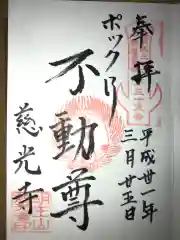 奉拝
ポックリ
不動尊
平成廿一年
三月廿五日
慈光寺